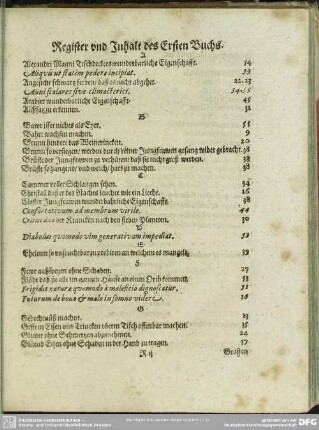 Register vnd Inhalt des Ersten Buchs.
A
Alexandri Magni Tischdeckers wunderbarliche Eigenschafft. 14
Aliquis ut statim pedere incipiat. 53
Angesicht schwartz ferben/ daß es nicht abgehet. 22.23
Anni scalares sive climacterici. 54.55
Araber wunderbarliche Eigenschafft. 45
Außsatz zu erkennen. 31
B
Bawr isset nichts als Eyer. 55
Bahrt wachsen machen. 9
Brunn hindert das Weinerincken. 20
Brüste der Jungfrawen zu verhüten/ daß sie nicht groß werden. 38
Brüste so hangen/ vnd weich/ hart zu machen. 38
C
Cammer voller Schlangen sehen. 34
Christall daß er des Nachts leuchte wie ein Liecht. 26
Closter Jungfrawen wunderbarliche Eigenschafft. 38
Confortativum ad membrum virile. 44
Krancken nach den sieben Planeten. 30
D
Diabolus quomodo vim generativam impediat. 52
E
Eheleute an welchem es mangele. 39
F
Fewr außspeyen ohne Schaden. 27
Flöhe daß sie alle im gantzen Hause an einen Orth kommen. 53
Frigiditatem natura quomodo à maleficio dignoscatur. 51
Futurum de bono & malo in somno videre. 16
G
Gedechtnuß machen. 13
Gesse Essen vnd Trincken oberm Tisch offenbar machen. 35
ohne Schmertzen abzunehmen. 24
Glüend Eisen ohne Schaden in der Hand zu tragen. 37
R ij